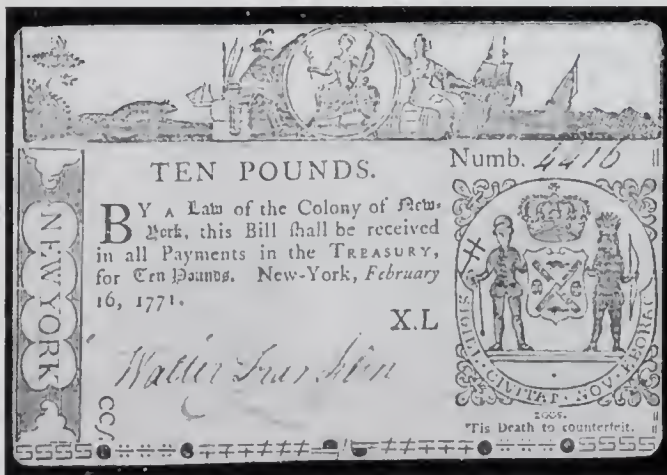 TEN POUNDS.
Numb. 4216
BY A Law of the Colony of New-
York, this Bill shall be received
in all Payments in the TREASURY,
for Ten Pounds. New-York, February
16, 1771.
X.L
Walter
NEW YORK
SIGILL. CIVITAT. NOV. EBORAC
'Tis Death to counterfeit.